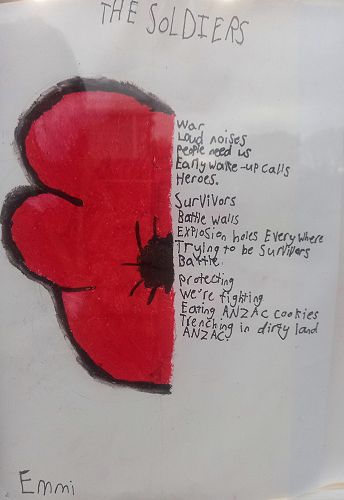 THE SOLDIERS
War
Loud noises
People need us
Early wake-up calls
Heroes.
Survivors
Battle walls
Explosion holes Everywhere
Trying to be Survivors
Battle.
Protecting
We're fighting
Eating ANZAC cookies
Trenching in dirty land
ANZAC.
Emmi